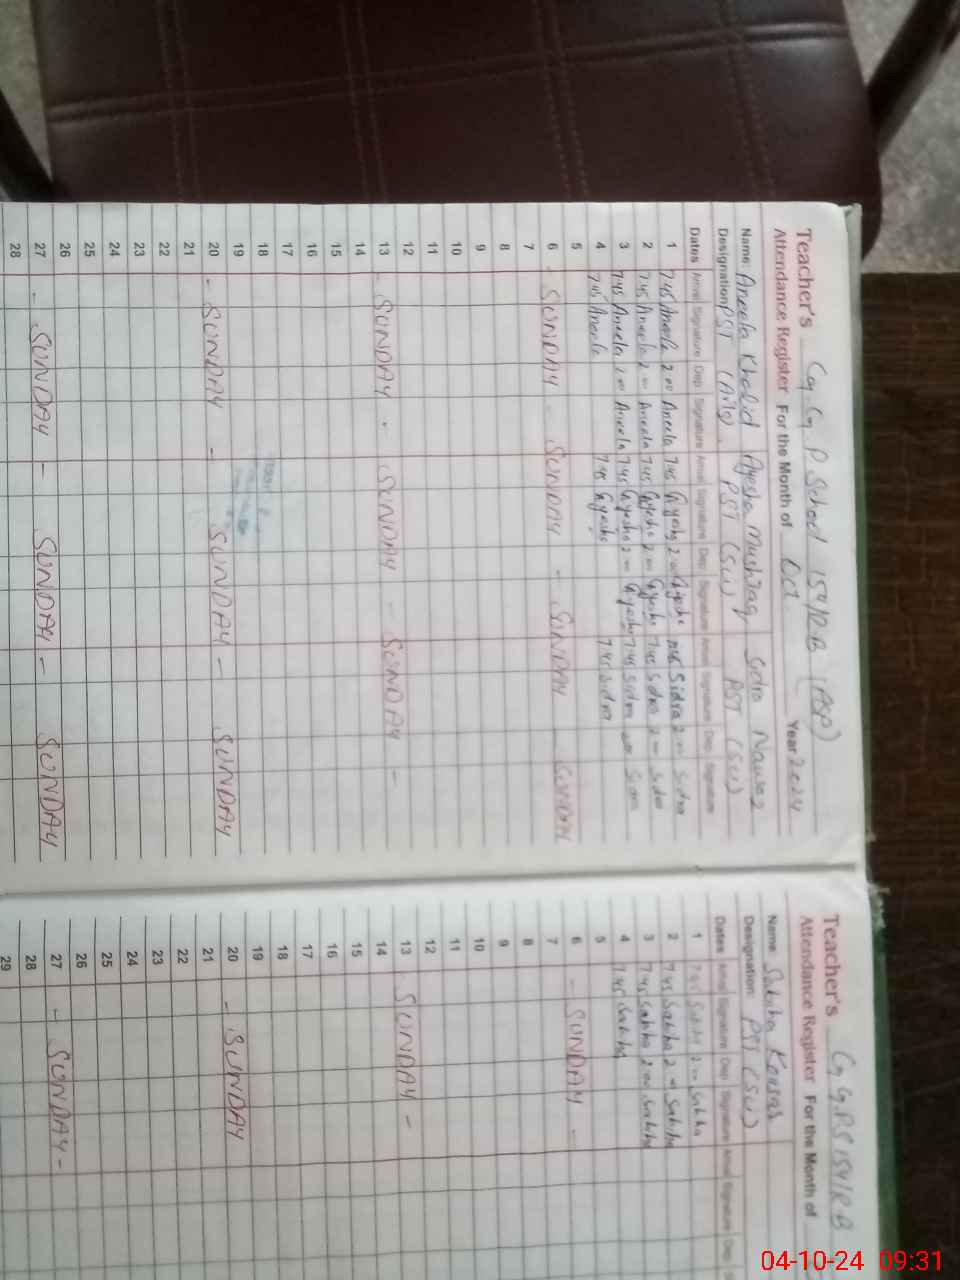 Teacher's G.G. P School 154/RB (ASP)
Attendance Register For the Month of Oct Year 2024
Name: Aneela Khalid Ayesha Mushtaq Sidra Nawaz
Designation PST (Arts) PST (SU) PST (SU)
Dates Arrival Signature Dep. Signature Arrival Signature Dep. Signature Arrival Signature Dep. Signature
1 7:45 Aneela 2:00 Aneela 7:45 Ayesha 2:00 Ayesha 7:45 Sidra 2:00 Sidra
2 7:45 Aneela 2:00 Aneela 7:45 Ayesha 2:00 Ayesha 7:45 Sidra 2:00 Sidra
3 7:45 Aneela 2:00 Aneela 7:45 Ayesha 2:00 Ayesha 7:45 Sidra 2:00 Sidra
4 7:45 Aneela 7:45 Ayesha 7:45 Sidra
5
6 - SUNDAY - SUNDAY - SUNDAY SUNDAY
7
8
9
10
11
12
13 - SUNDAY - SUNDAY - SUNDAY -
14
15
16
17
18
19
20 - SUNDAY - SUNDAY - SUNDAY
21
22
23
24
25
26
27 - SUNDAY - SUNDAY - SUNDAY
28
Teacher's G.G.PS 154/RB
Attendance Register For the Month of
Name: Sabiha Kousar
Designation: PST (SU)
Dates Arrival Signature Dep. Signature Arrival Signature Dep.
1 7:45 Sabiha 2:00 Sabiha
2 7:45 Sabiha 2:00 Sabiha
3 7:45 Sabiha 2:00 Sabiha
4 7:45 Sabiha
5
6 - SUNDAY -
7
8
9
10
11
12
13 - SUNDAY -
14
15
16
17
18
19
20 - SUNDAY
21
22
23
24
25
26
27 - SUNDAY -
28
29
04-10-24 09:31